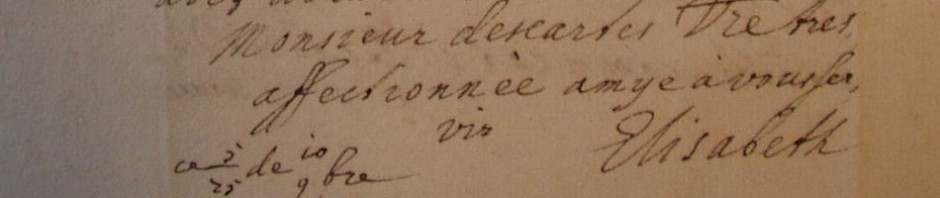 Monsieur descartes Vre tres
affectionnèe amye à vous ser,
vir
Elisabeth
ce 5/25 de 10/9 bre